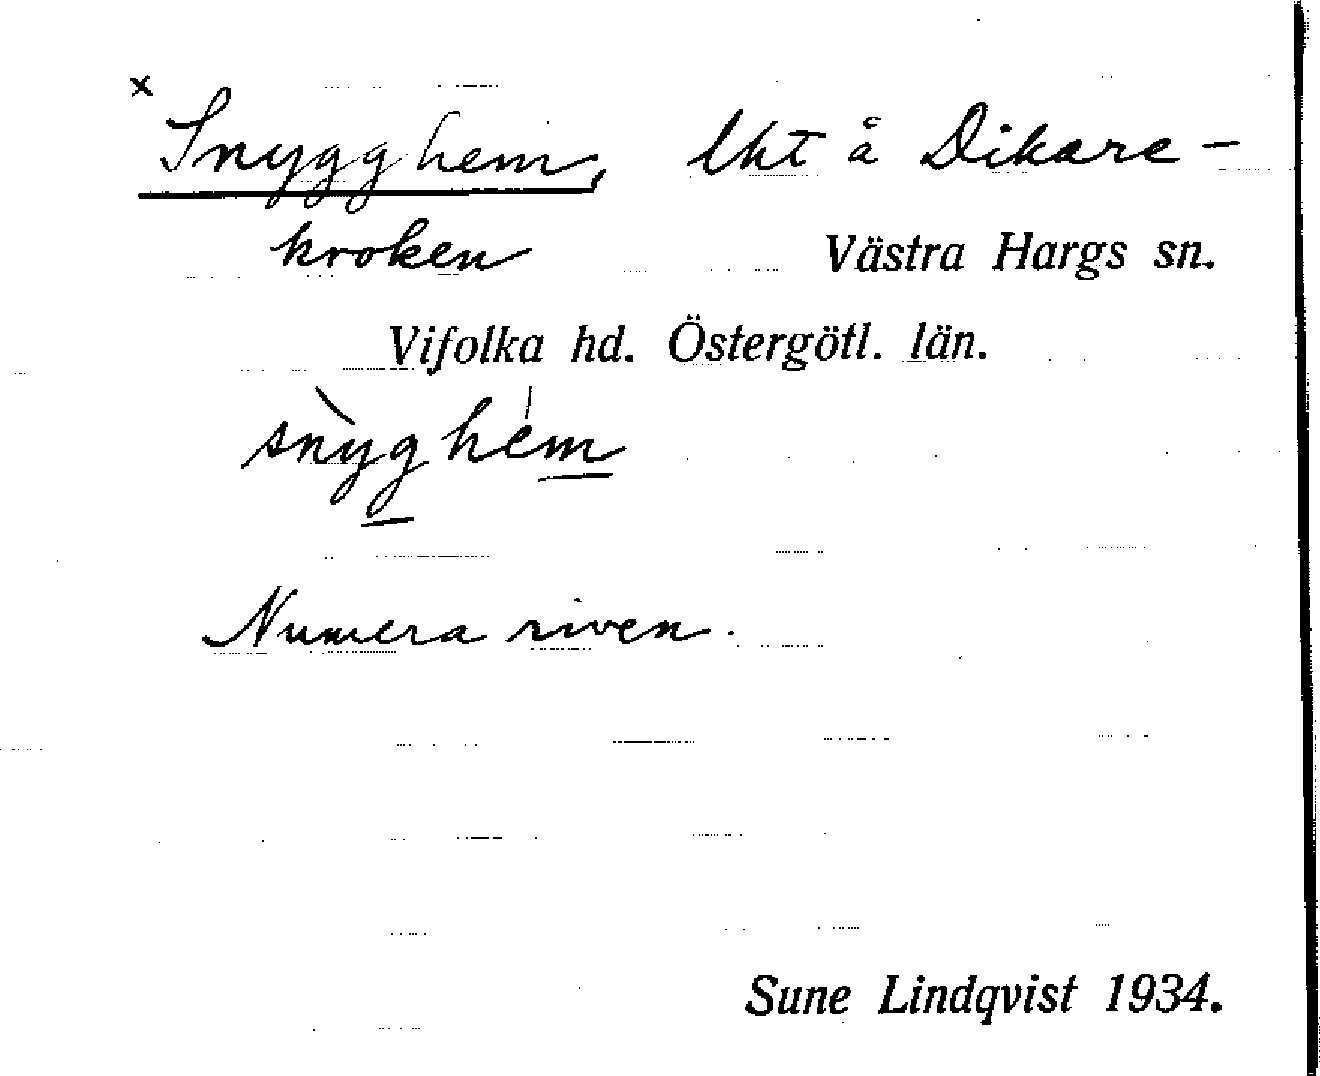 x
Snygghem, lht å Dikare-
kroken Västra Hargs sn.
Vifolka hd. Östergötl. län.
snỳghém
Numera riven.
Sune Lindqvist 1934.